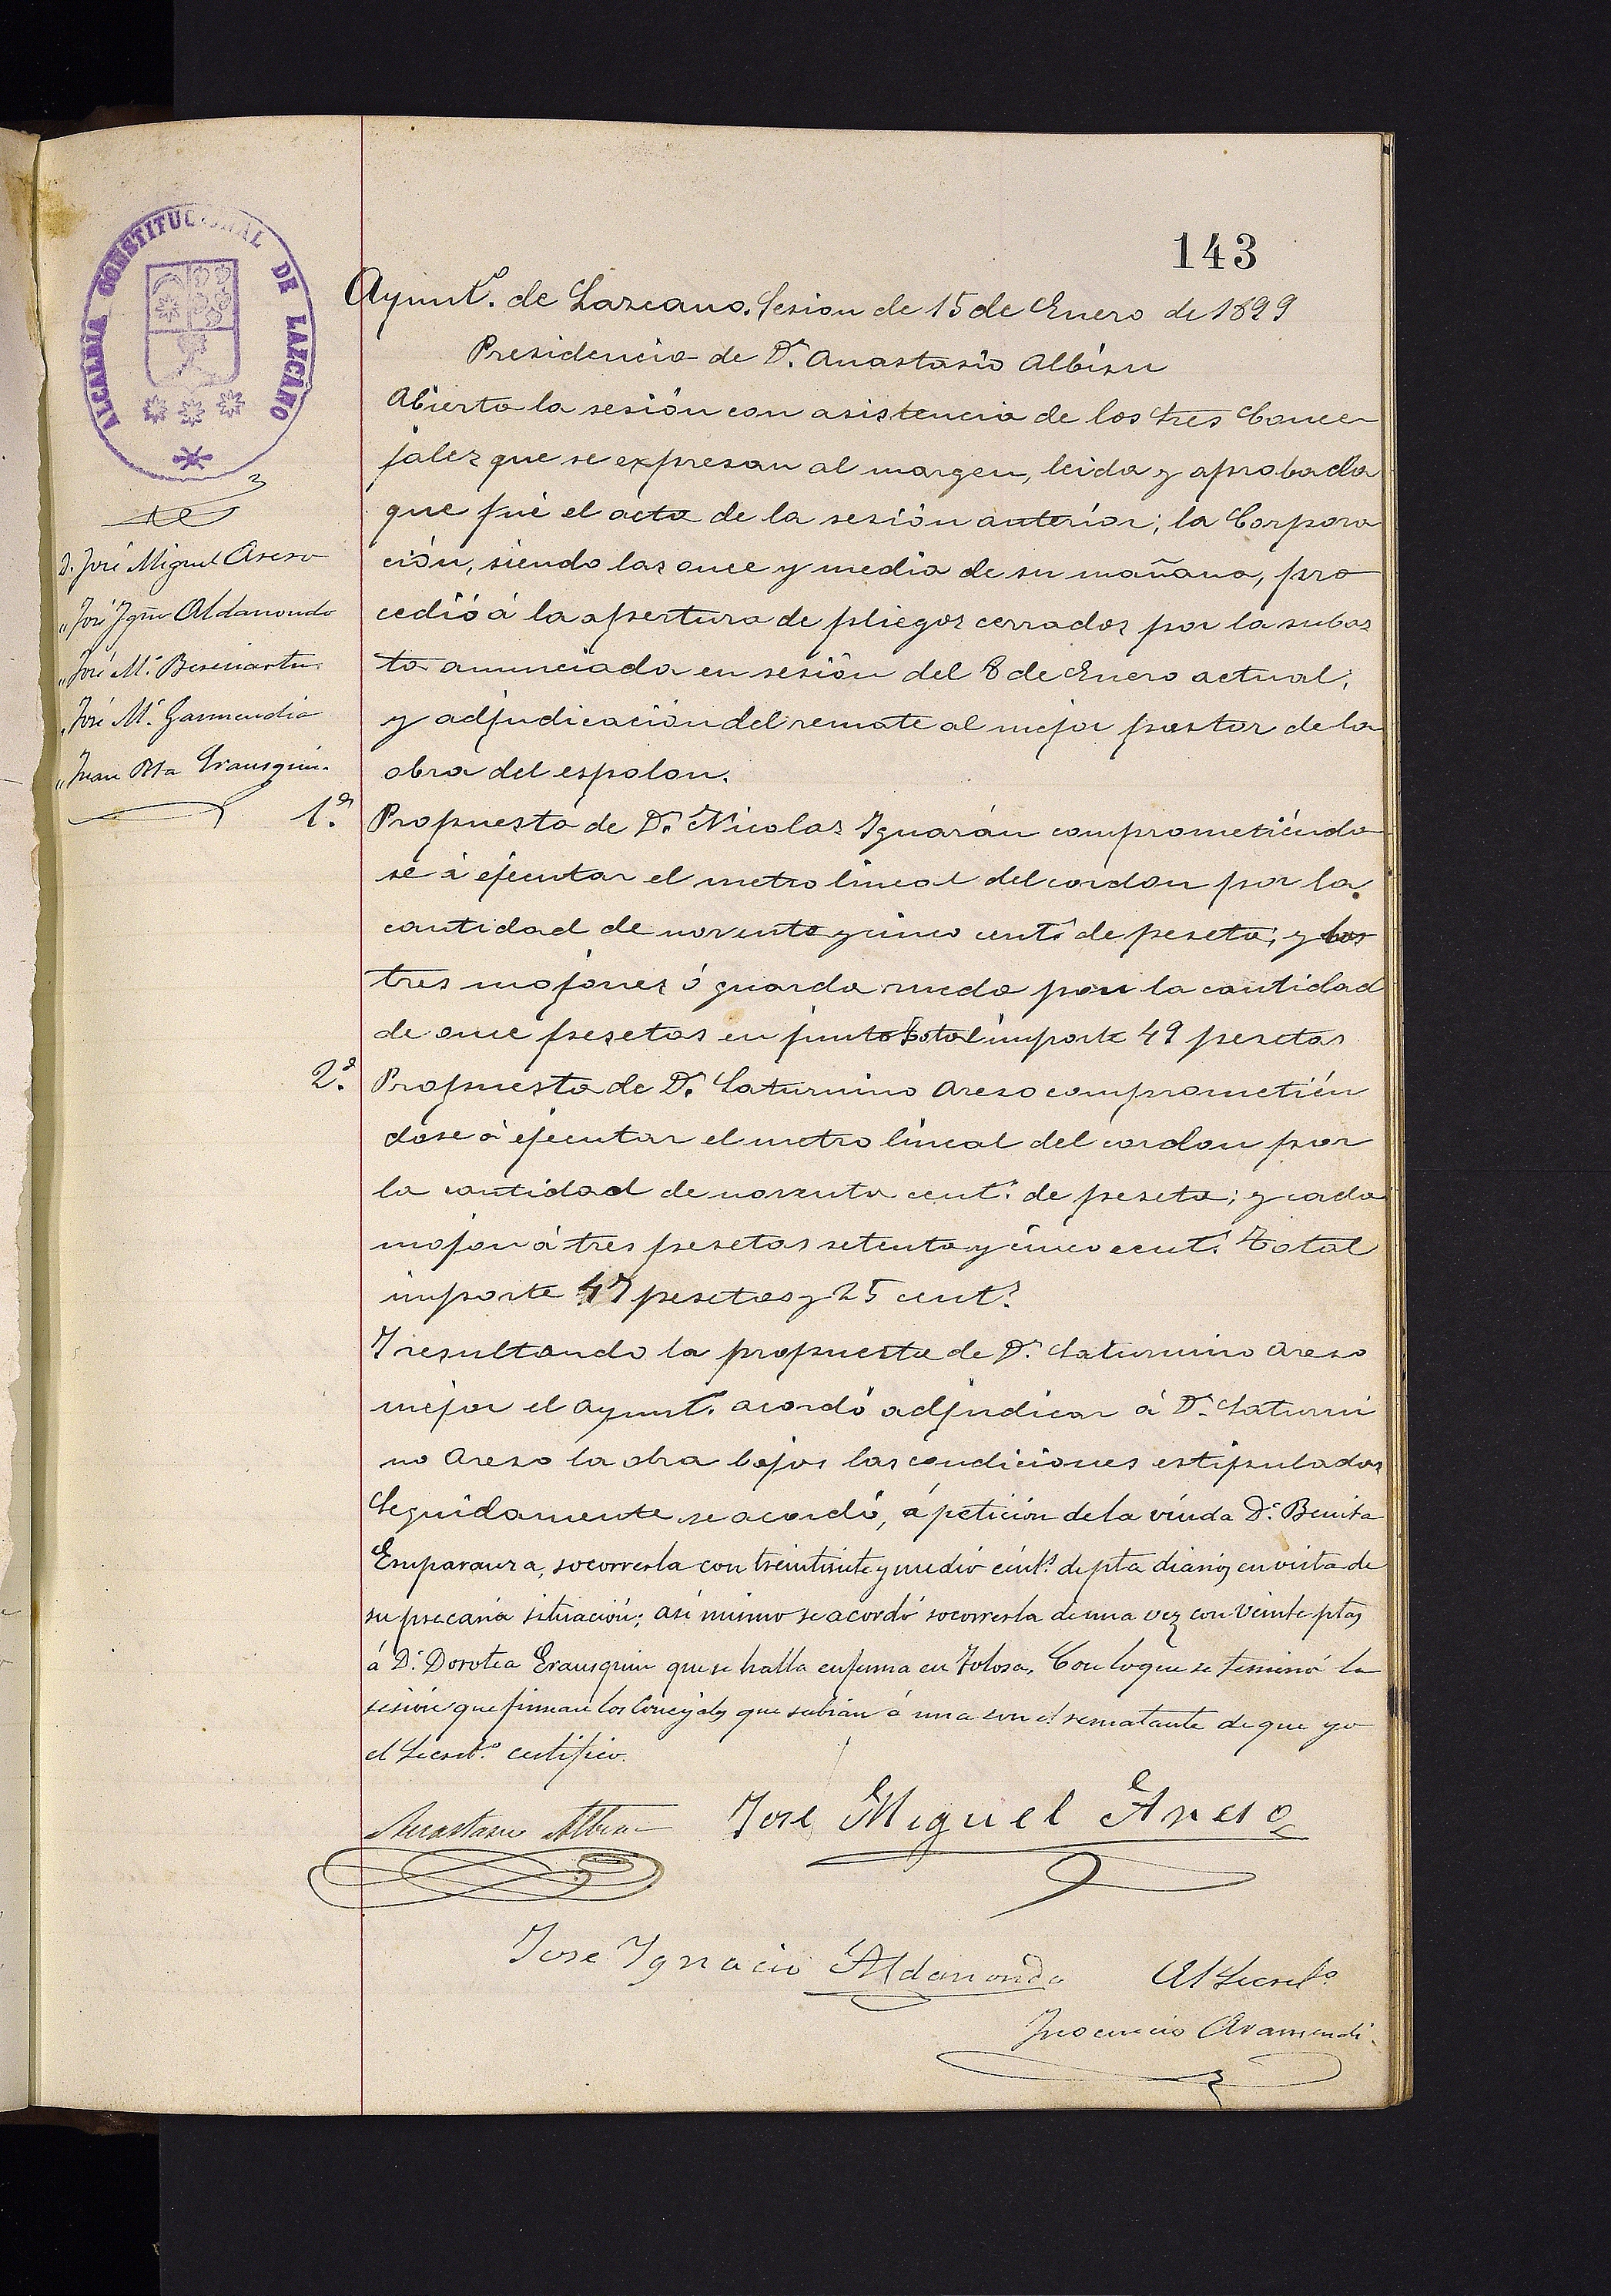 143
ALCALDIA CONSTITUCIONAL DE LAZCANO
Ayunt.º de Lazcano. Sesion de 15 de Enero de 1899
Presidencia de D.n Anastasio Albisu
Abierta la sesión con asistencia de los tres Conce
jales que se expresan al margen, leida y aprobada
que fué el acta de la sesión anterior; la Corpora
ción, siendo las once y media de su mañana, pro
cedió á la apertura de pliegos cerrados por la subas
ta anunciada en sesión del 8 de Enero actual,
y adjudicación del remate al mejor postor de la
obra del espolon.
D. José Miguel Areso
" José Ign.º Aldanondo
" José M.ª Beseriartu
" José M.ª Garmendia
" Juan Bta Erausquin.
1.ª Propuesta de D.n Nicolas Iguarán comprometiéndo
se á ejecutar el metro lineal del cordon por la
cantidad de noventa y cinco cent.s de peseta; y los
tres mojones ó guarda rueda por la cantidad
de once pesetas en junto total importe 49 pesetas
2.ª Propuesta de D.n Saturnino Areso comprometién
dose á ejecutar el metro lineal del cordon por
la cantidad de noventa cent.s de peseta; y cada
mojon á tres pesetas setenta y cinco cent.s Total
importe 47 pesetas y 25 cent.s
Y resultando la propuesta de D.n Saturnino Areso
mejor el Ayunt.º acordó adjudicar á D.n Saturni
no Areso la obra bajos las condiciones estipuladas
Seguidamente se acordó, á petición de la viuda D.ª Benita
Emparanza, socorrerla con treintisiete y medio cént.s de pta diarios en vista de
su precaria situación; así mismo se acordó socorrerla de una vez con veinte ptas
á D.ª Dorotea Erausquin que se halla enferma en Tolosa. Con lo que se terminó la
sesión que firman los Concejales que sabian á una con el rematante de que yo
el Secret.º certifico.
Anastasio Albisu
José Miguel Areso
Jose Ignacio Aldanondo
El Secret.º
Inocencio Aramendi